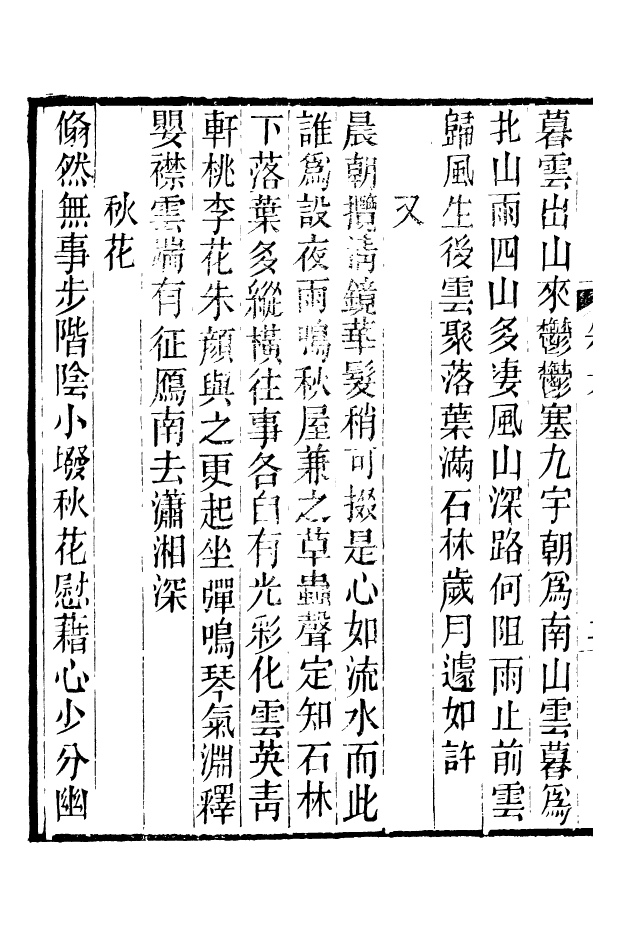 暮雲出山來鬱鬱塞九宇朝爲南山雲暮爲
北山雨四山多凄風山深路何阻雨止前雲
歸風生後雲聚落葉滿石林歲月遽如許
又
晨朝攬清鏡華髮稍可掇是心如流水而此
誰爲設夜雨鳴秋屋兼之草蟲聲定知石林
下落葉多縱橫往事各自有光彩化雲英青
軒桃李花朱顏與之更起坐彈鳴琴氣淵釋
嬰襟雲端有征鴈南去瀟湘深
秋花
翛然無事步階陰小墢秋花慰藉心少分幽